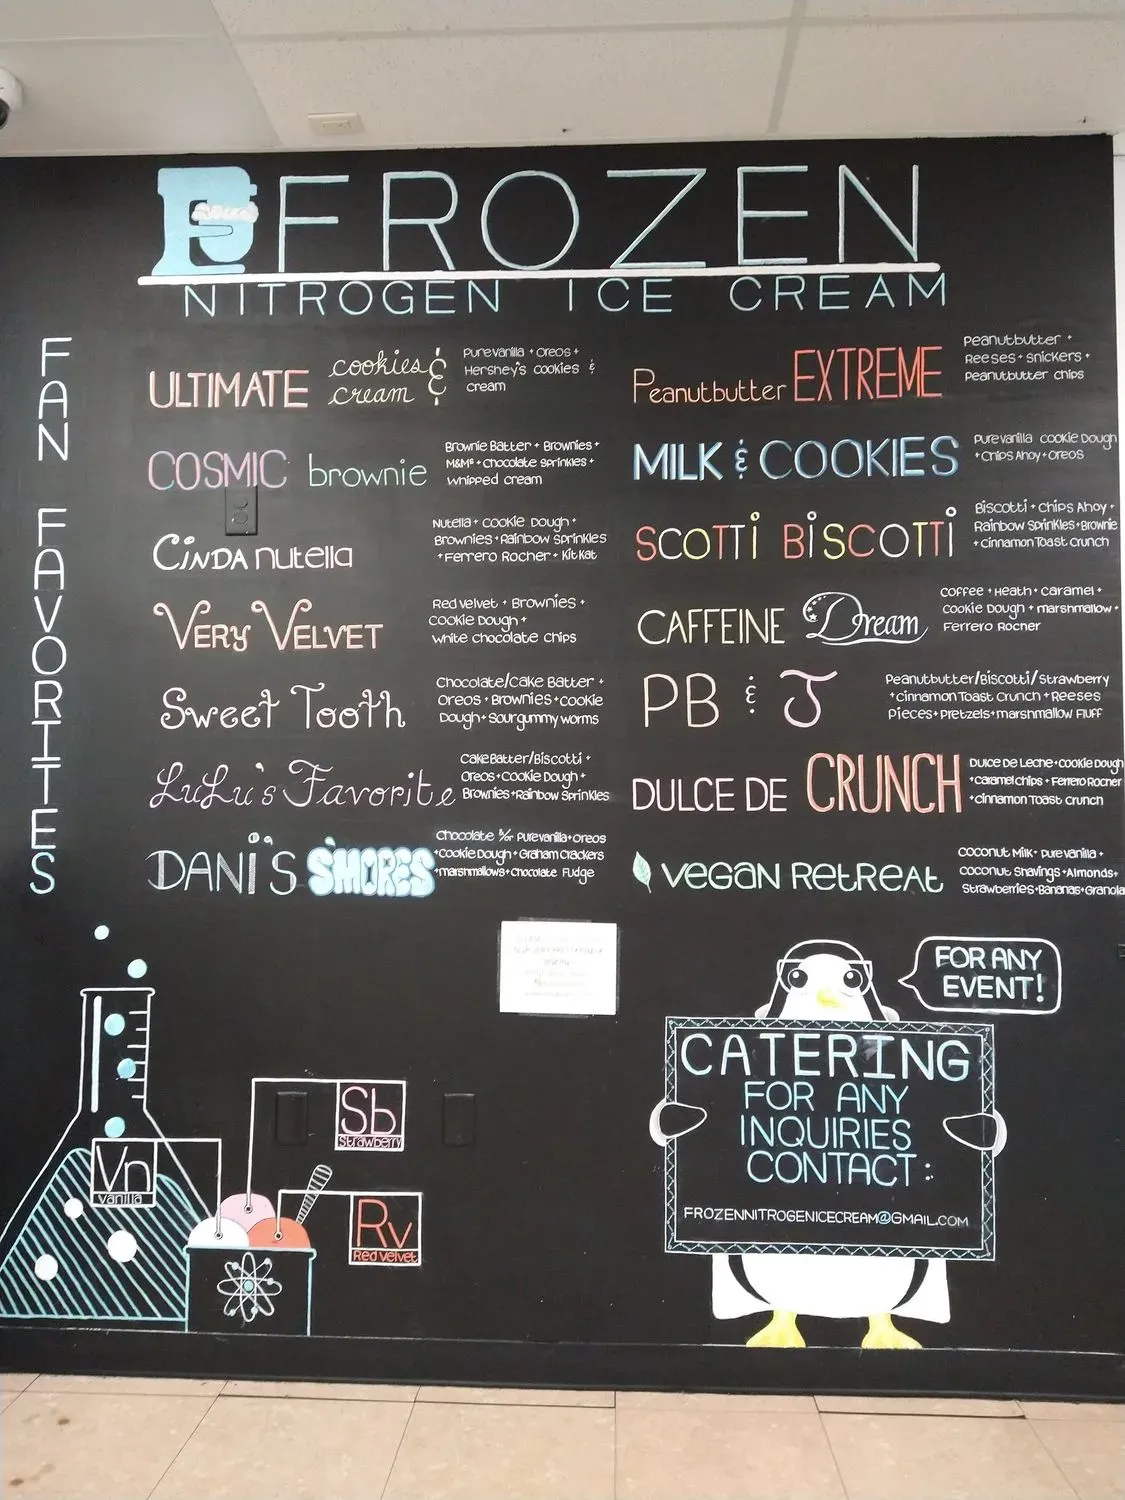 FROZEN
NITROGEN ICE CREAM
FAN FAVORITES
ULTIMATE cookies & cream
Pure vanilla + Oreos +
Hershey's cookies &
cream
COSMIC brownie
Brownie Batter + Brownies +
M&Ms + Chocolate Sprinkles +
whipped cream
CINDA nutella
Nutella + Cookie Dough +
Brownies + Rainbow Sprinkles
+ Ferrero Rocher + Kit Kat
VERY VELVET
Red velvet + Brownies +
Cookie Dough +
white chocolate chips
Sweet Tooth
Chocolate/Cake Batter +
Oreos + Brownies + Cookie
Dough + Sour gummy worms
LuLu's Favorite
Cake Batter/Biscotti +
Oreos + Cookie Dough +
Brownies + Rainbow Sprinkles
DANi'S S'MORES
Chocolate &/or Pure vanilla + Oreos
+ Cookie Dough + Graham Crackers
+ marshmallows + Chocolate Fudge
Peanutbutter EXTREME
Peanutbutter +
Reeses + Snickers +
Peanutbutter chips
MILK & COOKIES
Pure vanilla cookie Dough
+ Chips Ahoy + Oreos
SCOTTi BiSCOTTi
Biscotti + Chips Ahoy +
Rainbow Sprinkles + Brownie
+ Cinnamon Toast Crunch
CAFFEINE Dream
Coffee + Heath + Caramel +
Cookie Dough + marshmallow +
Ferrero Rocher
PB & J
Peanutbutter/Biscotti/Strawberry
+ Cinnamon Toast Crunch + Reeses
Pieces + Pretzels + marshmallow Fluff
DULCE DE CRUNCH
Dulce de Leche + Cookie Dough
+ Caramel chips + Ferrero Rocher
+ Cinnamon Toast Crunch
VEGAN RetReat
Coconut Milk + Pure vanilla +
Coconut Shavings + Almonds +
Strawberries + Bananas + Granola
FOR ANY
EVENT!
CATERING
FOR ANY
INQUIRIES
CONTACT:
FROZENNITROGENICECREAM@GMAIL.COM
Sb
Strawberry
Vn
vanilla
Rv
Red Velvet